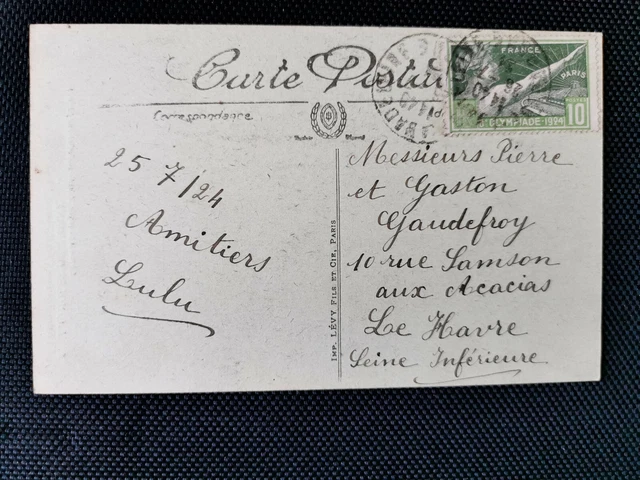 Carte Postale
Correspondance
25 7/24
Amitiers
Lulu
IMP. LÉVY FILS ET CIE, PARIS
FRANCE
PARIS
OLYMPIADE 1924
10
Messieurs Pierre
et Gaston
Gaudefroy
10 rue Samson
aux Acacias
Le Havre
Seine Inférieure